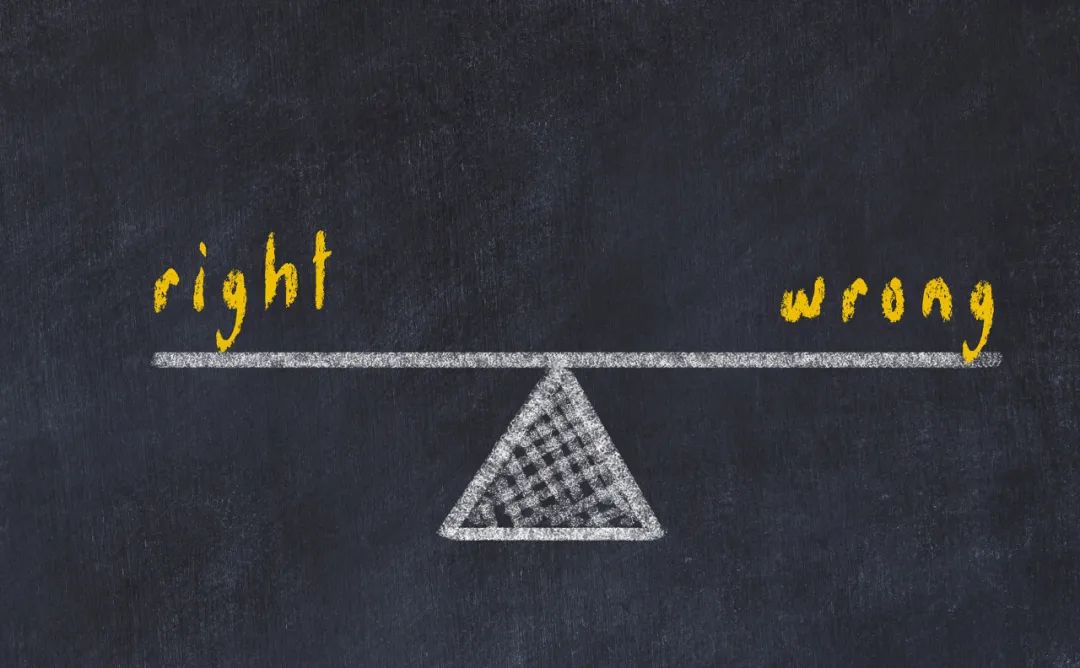 right wrong